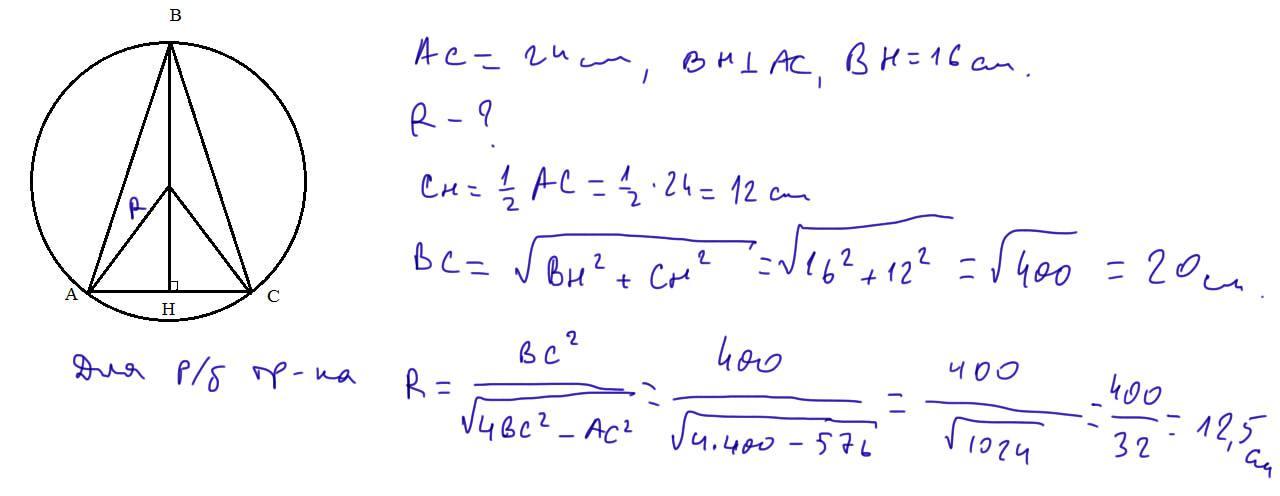 B
AC = 24 см, BH ⊥ AC, BH = 16 см.
R - ?
CH = 1/2 AC = 1/2 · 24 = 12 см
BC = √(BH² + CH²) = √(16² + 12²) = √400 = 20 см.
R
A
H
C
Для р/б тр-ка R = BC²/√(4BC² - AC²) = 400/√(4·400 - 576) = 400/√1024 = 400/32 = 12,5 см